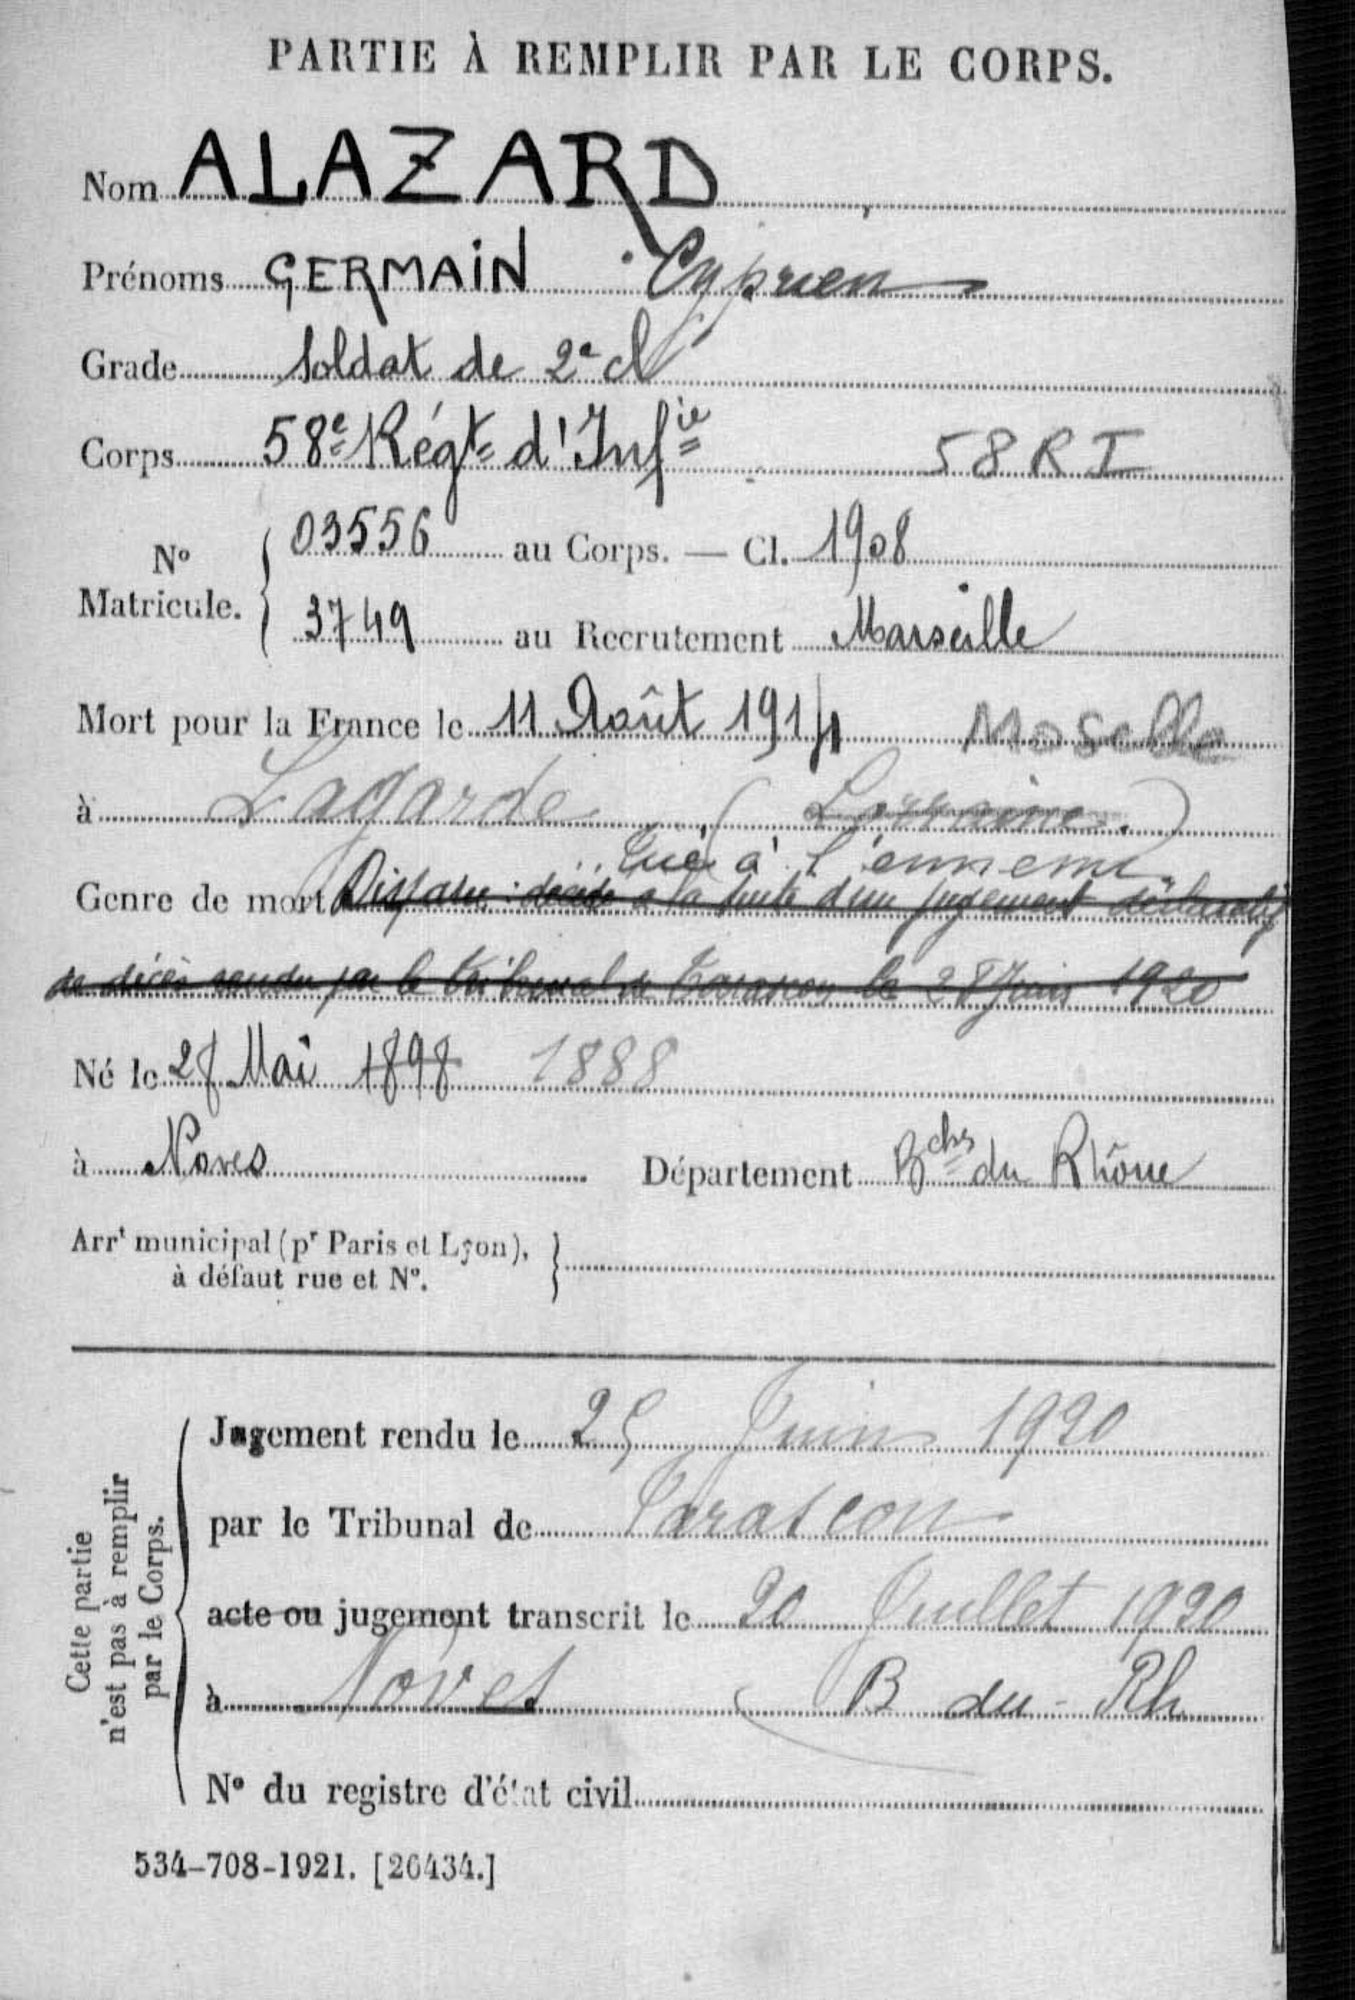 PARTIE À REMPLIR PAR LE CORPS.
Nom ALAZARD
Prénoms GERMAIN Cyprien
Grade Soldat de 2e cl
Corps 58e Régt d'Infie 58 R I
No Matricule. 03556 au Corps. — Cl. 1908
3749 au Recrutement Marseille
Mort pour la France le 11 Août 1914 Moselle
à Lagarde (Lorraine.)
tué à l'ennemi
Genre de mort Disparu : décédé à la suite d'un jugement déclaratif
de décès rendu par le tribunal de Tarascon le 28 Juin 1920
Né le 28 Mai 1898 1888
à Noves Département Bches du Rhône
Arrt municipal (pr Paris et Lyon),
à défaut rue et No.
Cette partie
n'est pas à remplir
par le Corps.
Jugement rendu le 25 Juin 1920
par le Tribunal de Tarascon
acte ou jugement transcrit le 20 Juillet 1920
à Noves B du - Rh
No du registre d'état civil
534-708-1921. [26434.]